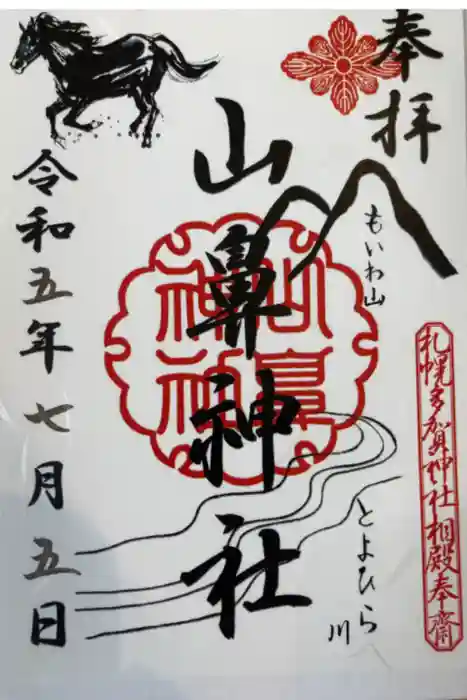 奉拝
もいわ山
札幌多賀神社相殿奉齋
とよひら川
山鼻神社
山鼻神社
令和五年七月五日